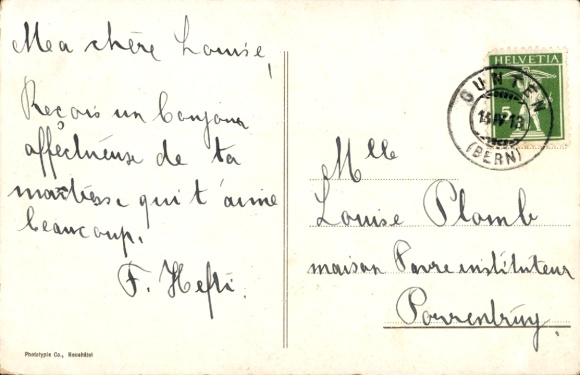 Mea chère Louise,
Reçois un bonjour
affectueuse de ta
maitresse qui t'aime
beaucoup.
F. Hefti.
Phototypie Co., Neuchâtel
HELVETIA
5
GUNTEN
13 IV 13
(BERN)
Mlle
Louise Plomb
maison Favre instituteur
Porrentruy.